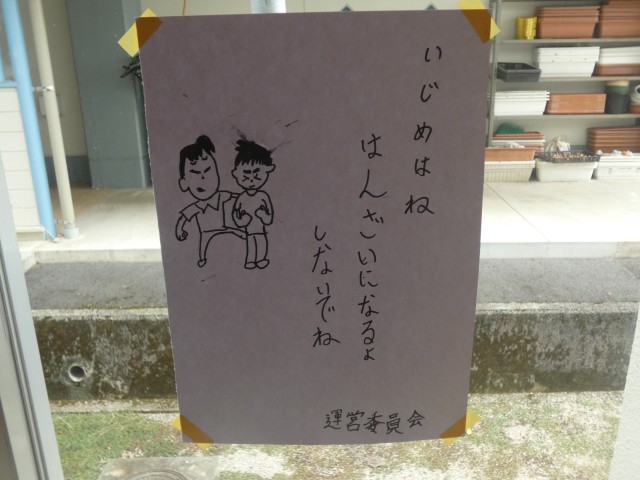 いじめはね
はんざいになるよ
しないでね
運営委員会